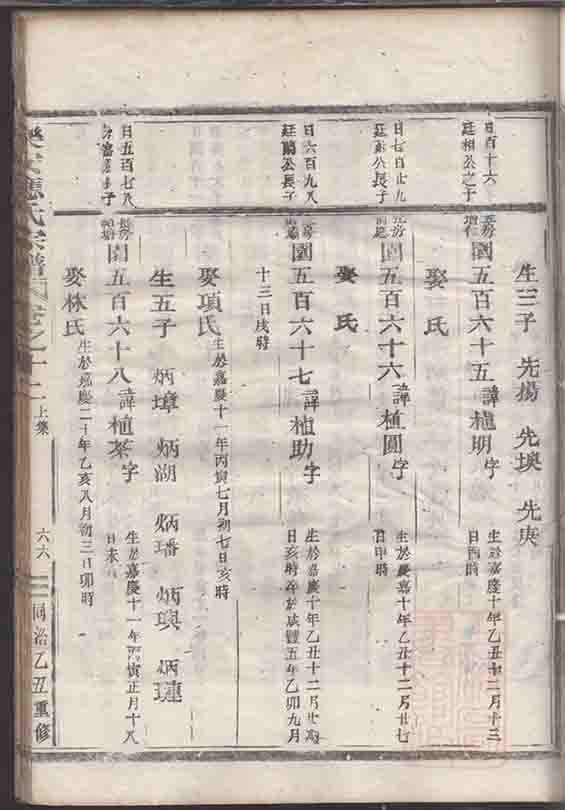 生三子 先揚 先㙋 先庚
日百十六
廷相公之子
園五百六十五 諱植明 字
生於嘉慶十年乙丑十二月十三
日酉時
娶 氏
日七百廿九
廷 公長子
園五百六十六 諱植圓 字
生於嘉慶十年乙丑十二月廿七
日申時
娶 氏
日六百九八
廷蘭公長子
園五百六十七 諱植助 字
生於嘉慶十年乙丑十二月廿
日亥時 卒於咸豐五年乙卯九月
十三日戌時
娶項氏 生於嘉慶十一年丙寅七月初七日亥時
生五子 炳墇 炳湖 炳璠 炳璵 炳璉
日五百七八
園五百六十八 諱植 字
生於嘉慶十一年丙寅正月十八
日未
娶林氏 生於嘉慶二十年乙亥八月初三日卯時
氏宗譜 卷之十二 上集 六六 同治乙丑重修